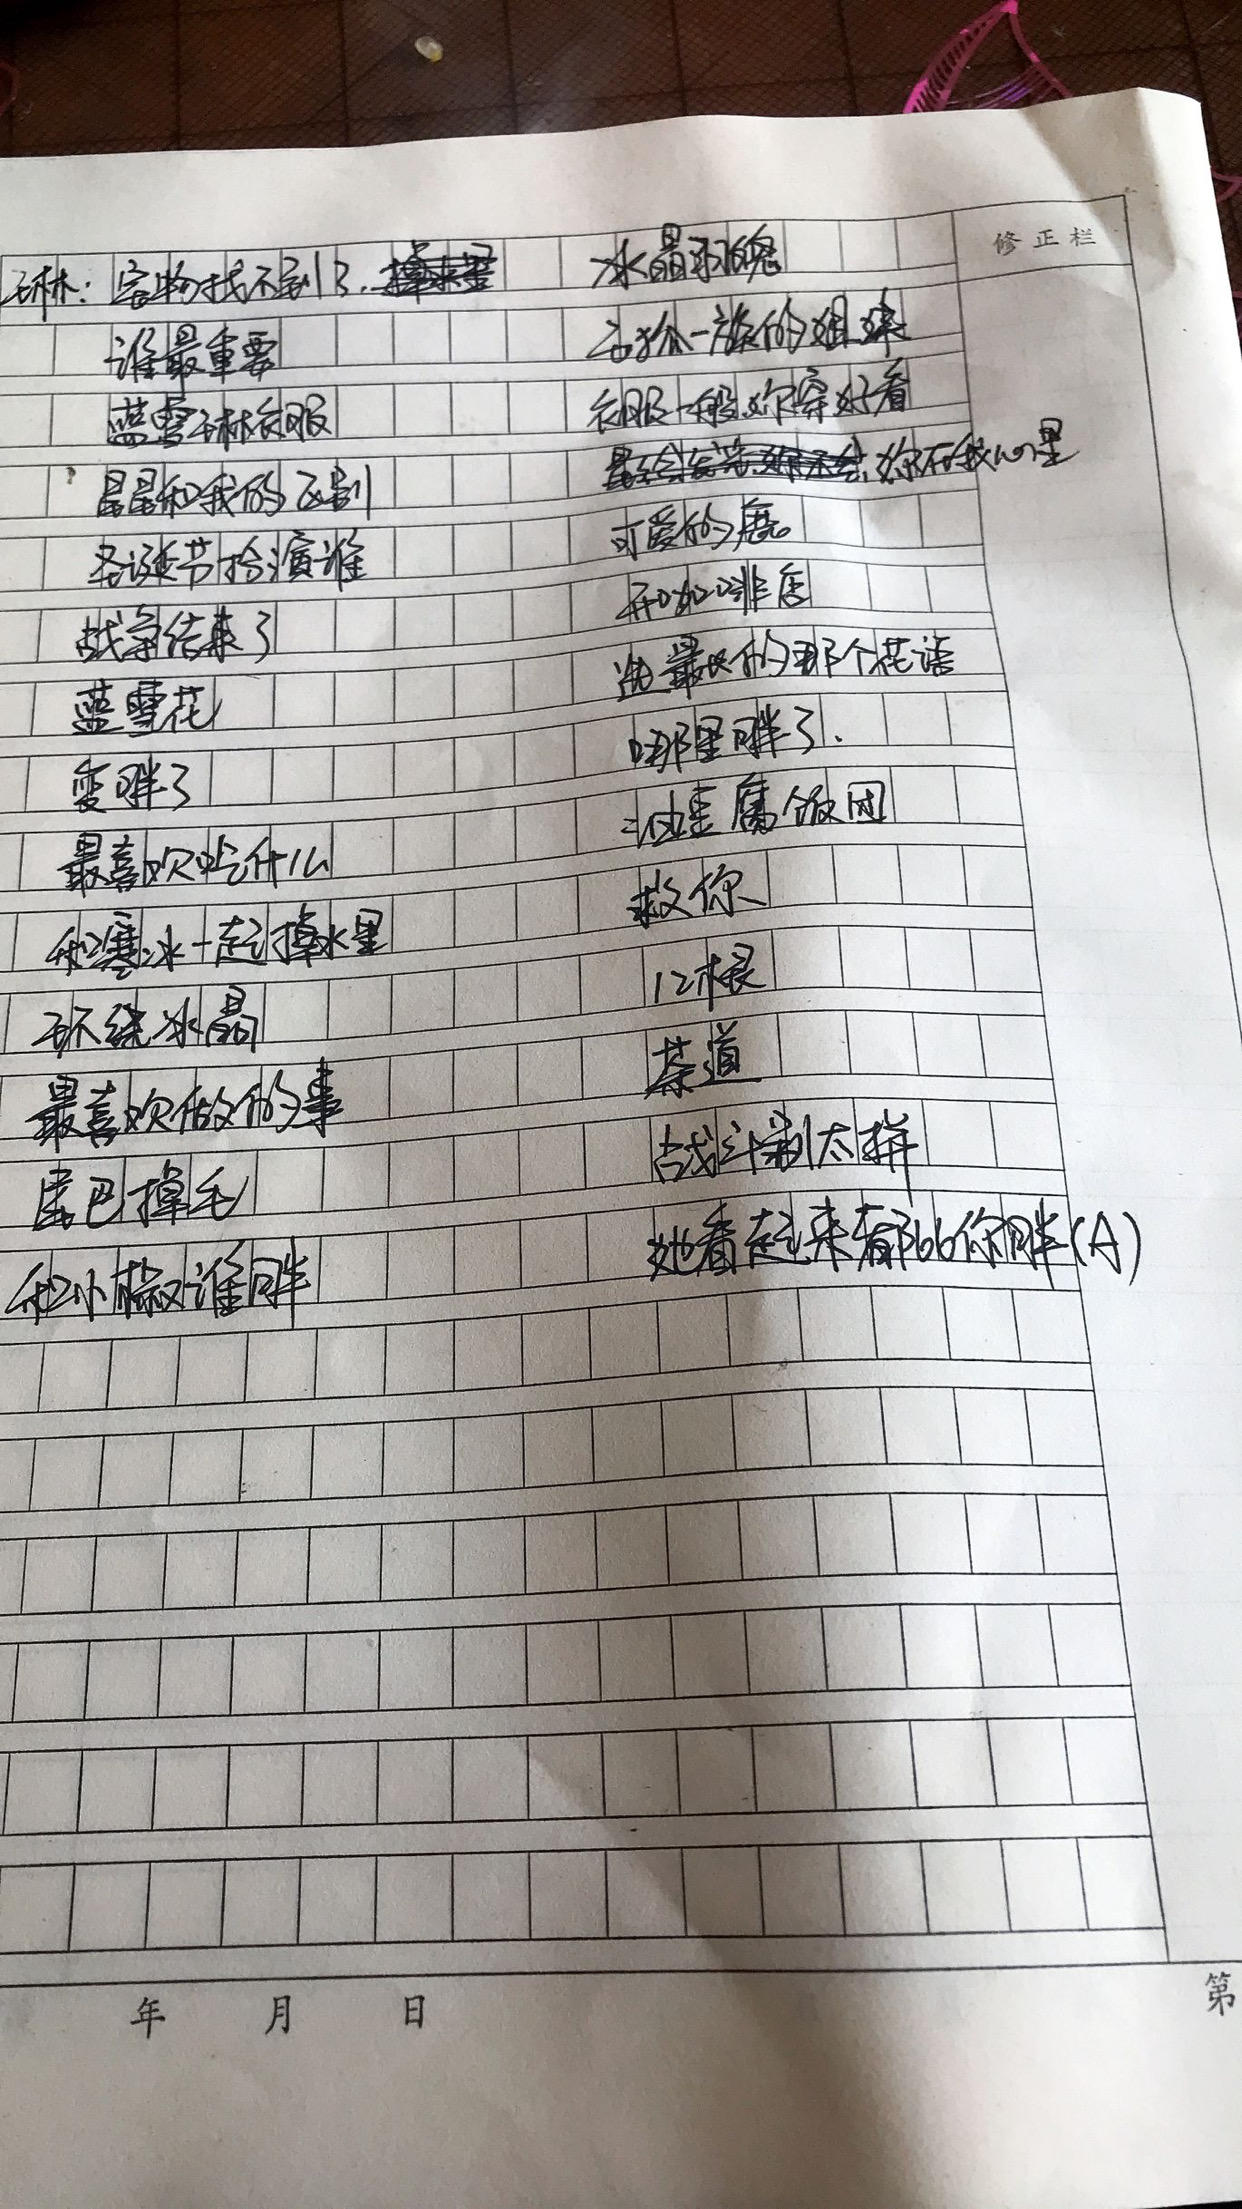 修正栏
琳：宝物找不到了. 水晶刑魄
谁最重要 云狐一族的姐妹
蓝雪琳衣服 衣服一般,你穿好看
星星和我的区别 你在我心里
圣诞节扮演谁 可爱的鹿。
战争结束了 开咖啡店
蓝雪花 选最长的那个花语
变胖了 哪里胖了.
最喜欢吃什么 油豆腐饭团
和寒冰一起掉水里 救你
环绕冰晶 12根
最喜欢做的事 茶道
尾巴掉毛 战斗别太拼
和小椒谁胖 她看起来都比你胖(A)
年 月 日 第